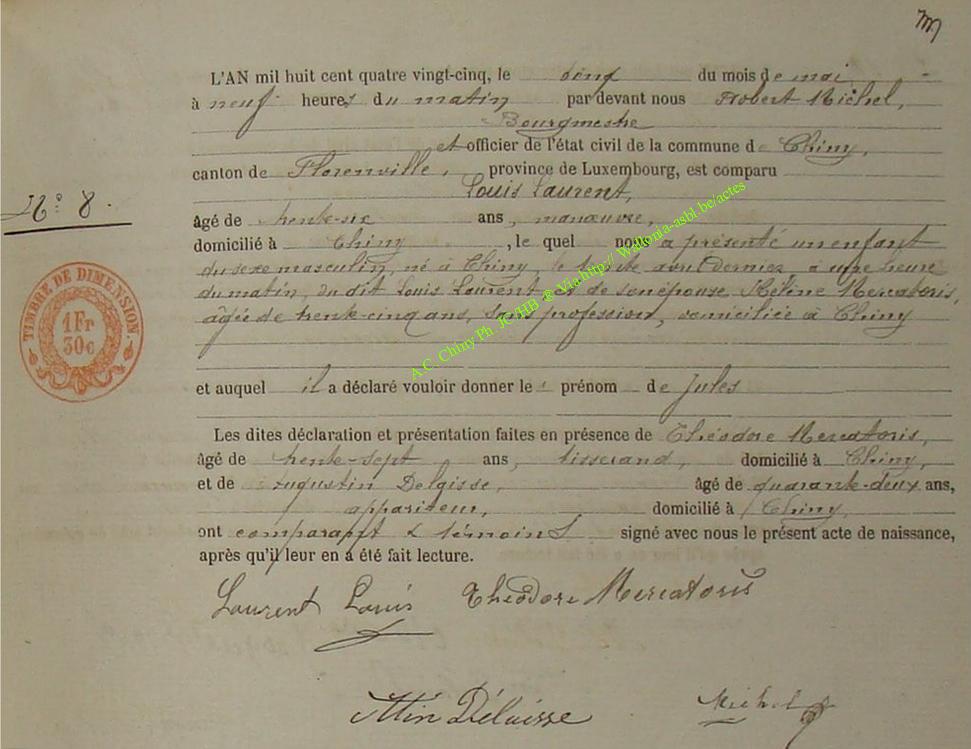 L'AN mil huit cent quatre vingt-cinq, le cinq du mois de mai
à neuf heures du matin par devant nous Robert Michel,
Bourgmestre
et officier de l'état civil de la commune de Chiny,
canton de Florenville, province de Luxembourg, est comparu
Louis Laurent,
N° 8.
âgé de trente-six ans, manœuvre,
domicilié à Chiny, le quel nous a présenté un enfant
du sexe masculin, né à Chiny, le trente avril dernier, à une heure
du matin, du dit Louis Laurent et de son épouse Hélène Mercatoris,
âgée de trente-cinq ans, sans profession, domiciliée à Chiny
TIMBRE DE DIMENSION
1Fr
30c
et auquel il a déclaré vouloir donner le prénom de Jules
Les dites déclaration et présentation faites en présence de Théodore Mercatoris,
âgé de trente-sept ans, tisserand, domicilié à Chiny,
et de Augustin Delaisse, âgé de quarante-deux ans,
appariteur, domicilié à Chiny,
ont comparant & témoins signé avec nous le présent acte de naissance,
après qu'il leur en a été fait lecture.
Laurent Louis Théodore Mercatoris
Atin Délaisse Michel
A.C. Chiny Ph. JC/HB @ Via http:// Wallonia-asbl.be/actes